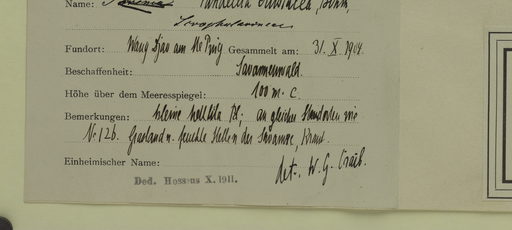 Name: Vandellia crustacea, Benth,
Scrophularineae
Fundort: Wang Djao am Me Ping Gesammelt am: 31. X. 1904.
Beschaffenheit: Savannenwald.
Höhe über dem Meeresspiegel: 100 m. c.
Bemerkungen: kleine hellila Bl; an gleichen Standorten wie
Nr 126. Grasland u. feuchte Stellen der Savanne, Kraut.
Einheimischer Name: det. W. G. Craib.
Ded. Hosseus X. 1911.